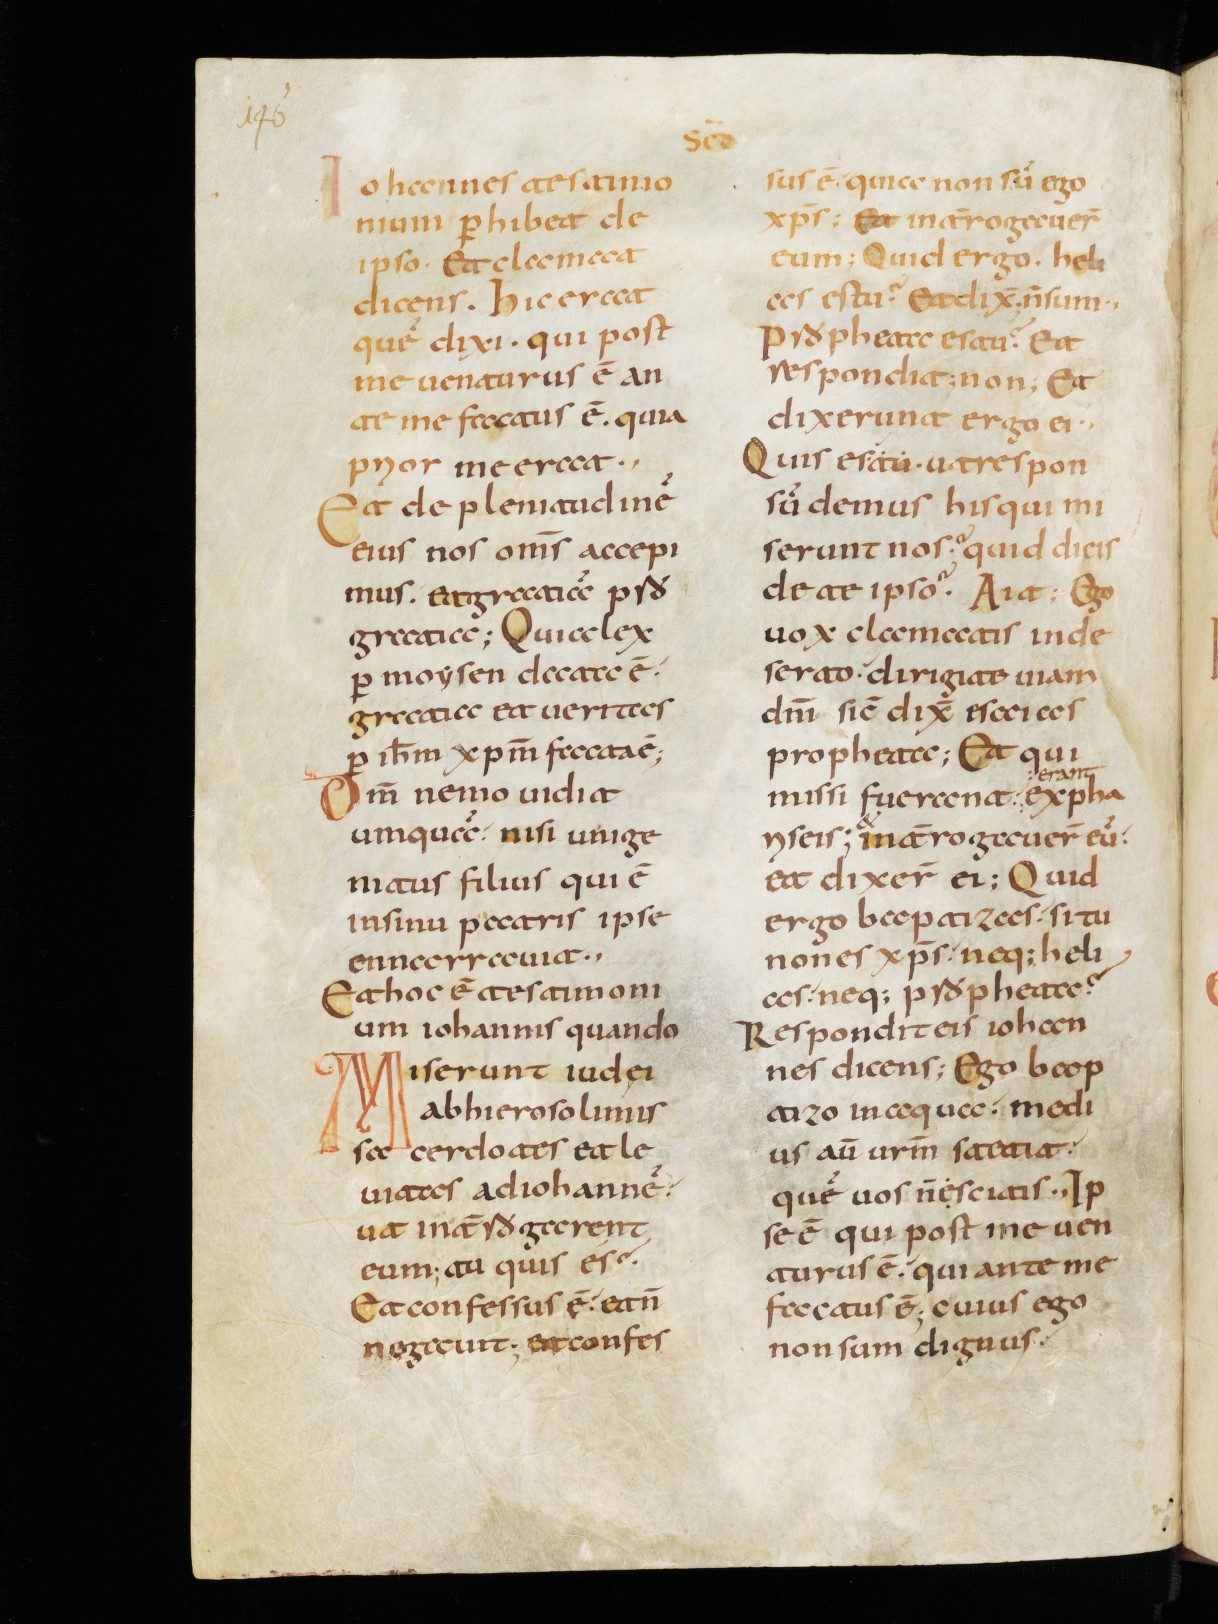 146
Scd
Iohannes testimo
nium p̄hibet de
ipso. Et clamat
dicens. Hic erat
quē dixi. qui post
me uenturus ē an
te me factus ē. quia
prior me erat.,
Et de plenitudinē
eius nos om̄s accepi
mus. et gratiā pro
gratia; Quia lex
p̄ moysen data ē.
gratia et ueritas
p̄ ih̄m xp̄m facta ē;
Dm̄ nemo uidit
umquā. nisi unige
nitus filius qui ē
in sinu patris ipse
ennarrauit.,
Et hoc ē testimoni
um iohannis quando
Miserunt iudei
ab hierosolimis
sacerdotes et le
uites ad iohannē.
ut int̄rogarent
eum; tu quis es?
Et confessus ē. et n̄
negauit; et confes
sus ē. quia non sū ego
xp̄s; Et int̄rogauer̄
eum; Quid ergo. heli
as es tu? Et dix̄; n̄ sum.,
Propheta es tu? Et
respondit; non; Et
dixerunt ergo ei.,
Quis es tu. ut respon
sū demus his qui mi
serunt nos.? quid dicis
de te ipso?. Ait: Ego
uox clamatis in de
serto. dirigite uiam
dn̄i sic̄ dix̄ esaias
propheta; Et qui
erant
missi fuerant. ex pha
&
riseis; int̄rogauer̄ eū.
et dixer̄ ei; Quid
ergo baptizas. si tu
non es xp̄s. neq; heli
as. neq; propheta?
Respondit eis iohan
nes dicens; Ego bap
tizo in aqua. medi
us aū ur̄m stetit.
quē uos nescitis., Ip
se ē qui post me uen
turus ē. qui ante me
factus ē; cuius ego
non sum dignus.